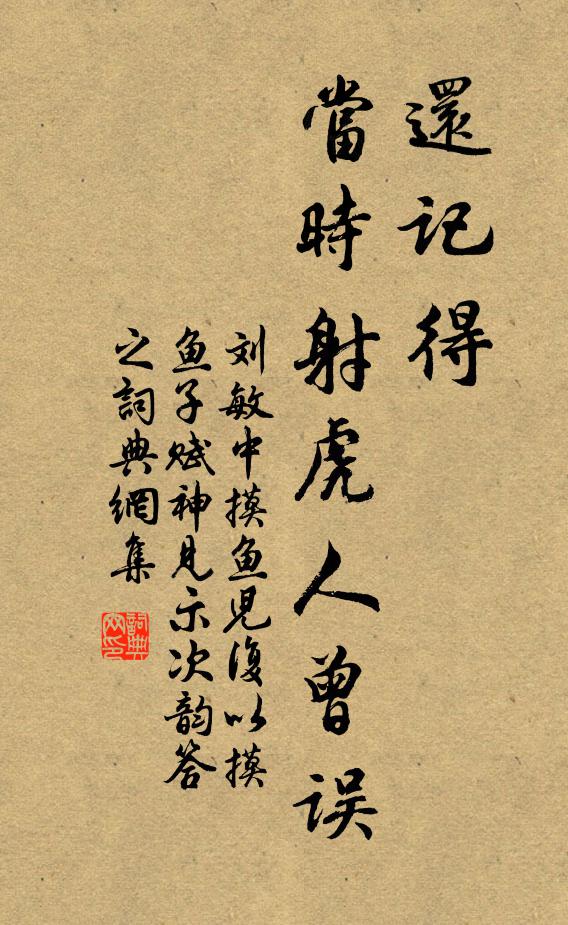 還記得
當時射虎人曾误
刘敏中摸鱼児復以摸
鱼子赋神見示次韵答
之詞典網集
詞典
网印